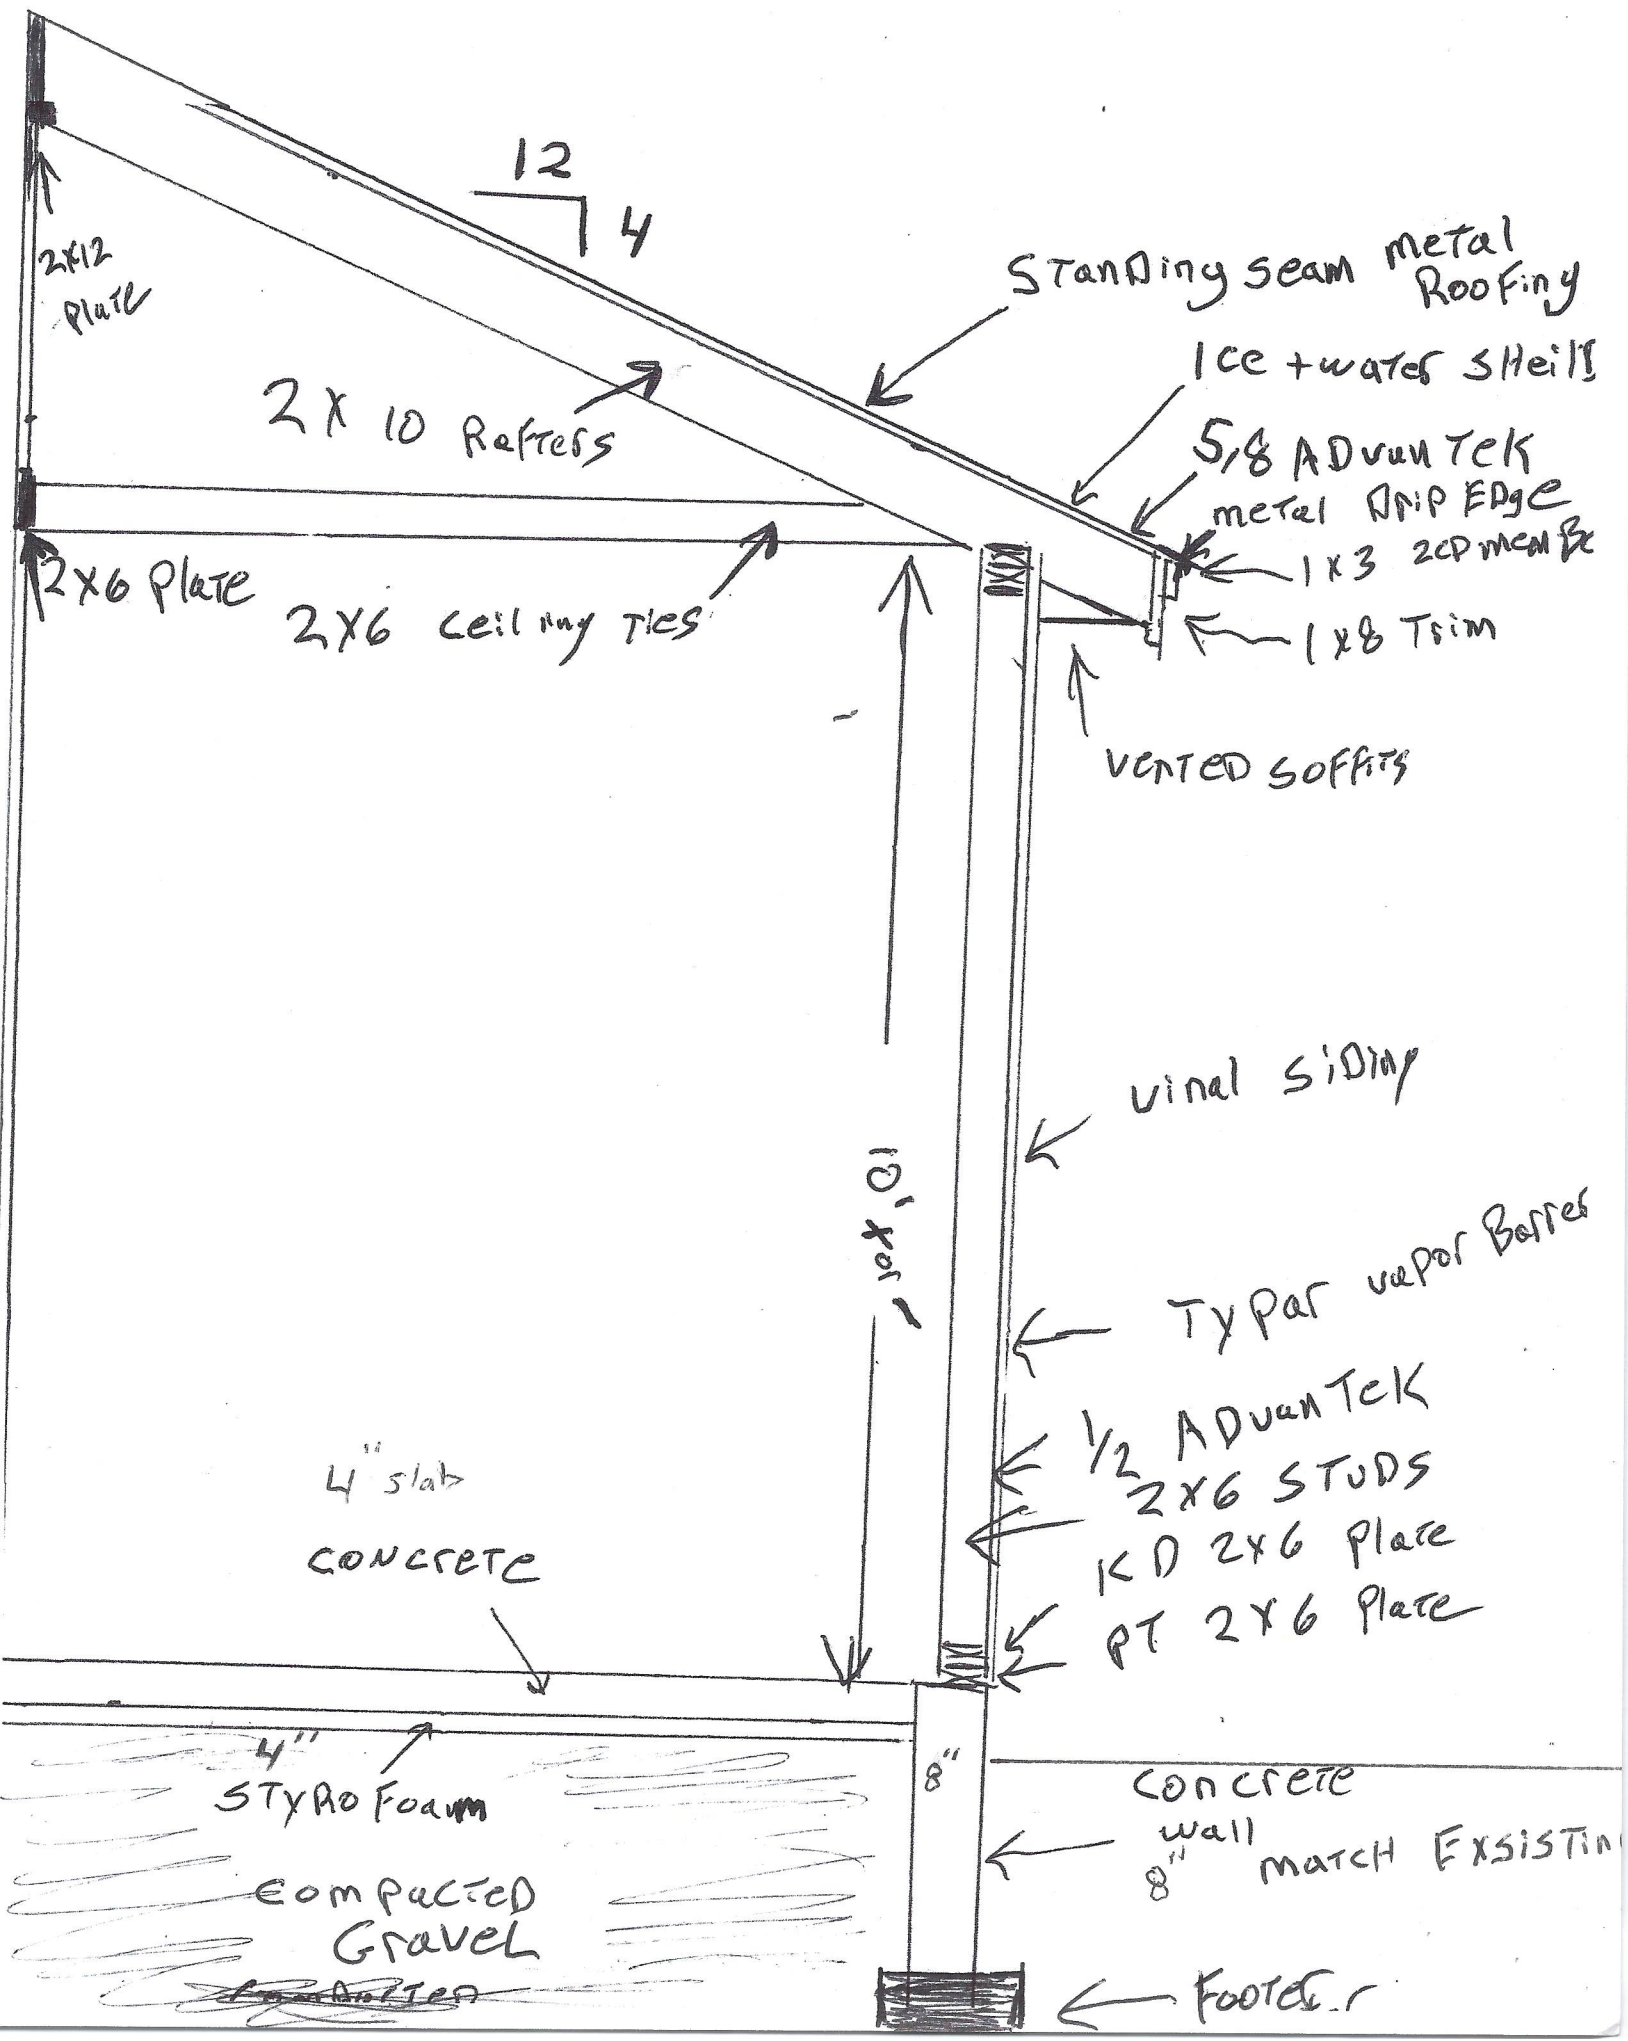 12
4
2x12
Plate
STanDing seam metal
Roofing
Ice + water sHeilD
5/8 ADvanTek
metal Drip EDge
1x3
2x10 Rafters
2x6 Plate
2x6 ceiling Ties
1x8 Trim
venTED soffiTs
10'
vinal siDing
Typar vapor Barrer
1/2 ADvanTek
2x6 STuDS
KD 2x6 Plate
PT 2x6 Plate
4" slab
concreTe
4"
STyRoFoam
8"
concreTe
wall
8" maTcH ExsisTin
compacTeD
Gravel
FooTer